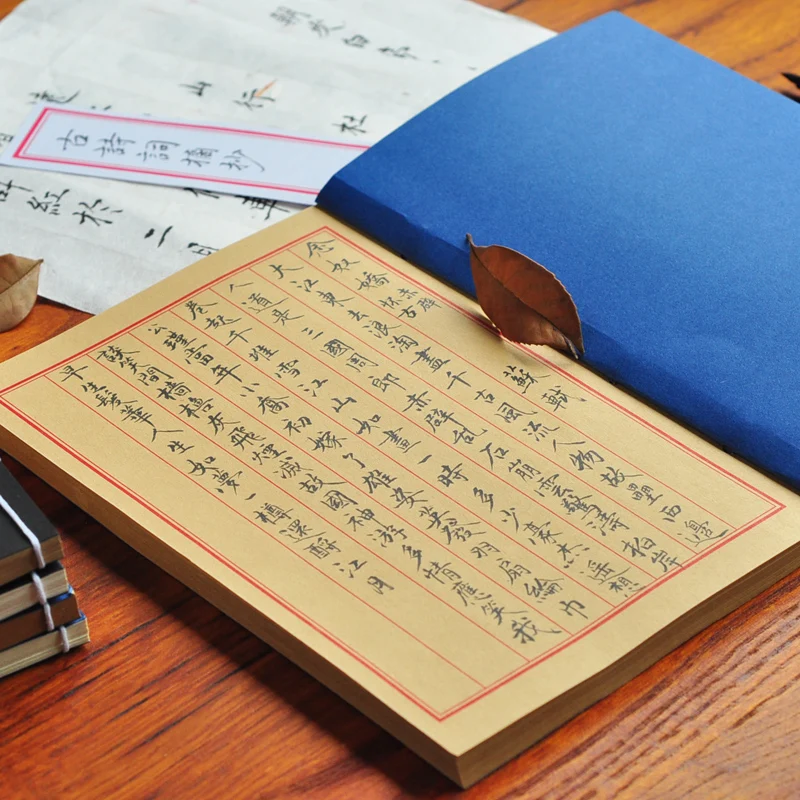 朝发白帝
山行 杜
紅於二月
古詩詞摘抄
念奴嬌 赤壁怀古 蘇軾
大江東去浪淘盡千古風流人物故壘西邊
人道是三國周郎赤壁亂石崩雲驚濤拍岸
卷起千堆雪江山如畫一時多少豪杰遥想
公瑾當年小喬初嫁了雄姿英發羽扇綸巾
談笑間檣櫓灰飛煙滅故國神游多情應笑我
早生髮華人生如夢一樽還酹江月